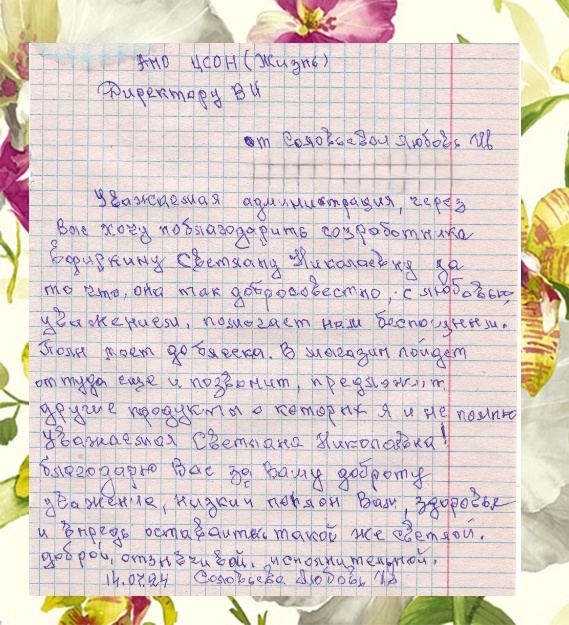 АНО ЦСОН (Жизнь)
Директору В И
от Соловьевой Любовь Ив
Уважаемая администрация, через
Вас хочу поблагодарить соцработника
Светлану Николаевну за
то что, она так добросовестно, с любовью,
уважением, помогает нам беспомущным.
Полы моет до блеска. В магазин пойдет
оттуда еще и позвонит, предложит
другие продукты о которых я и не помню
Уважаемая Светлана Николаевна!
благодарю Вас за Вашу доброту
уважение, низкий поклон Вам, здоровья
и впредь оставайтесь такой же светлой.
доброй, отзывчивой, исполнительной.
14.07.24 Соловьева Любовь Ив